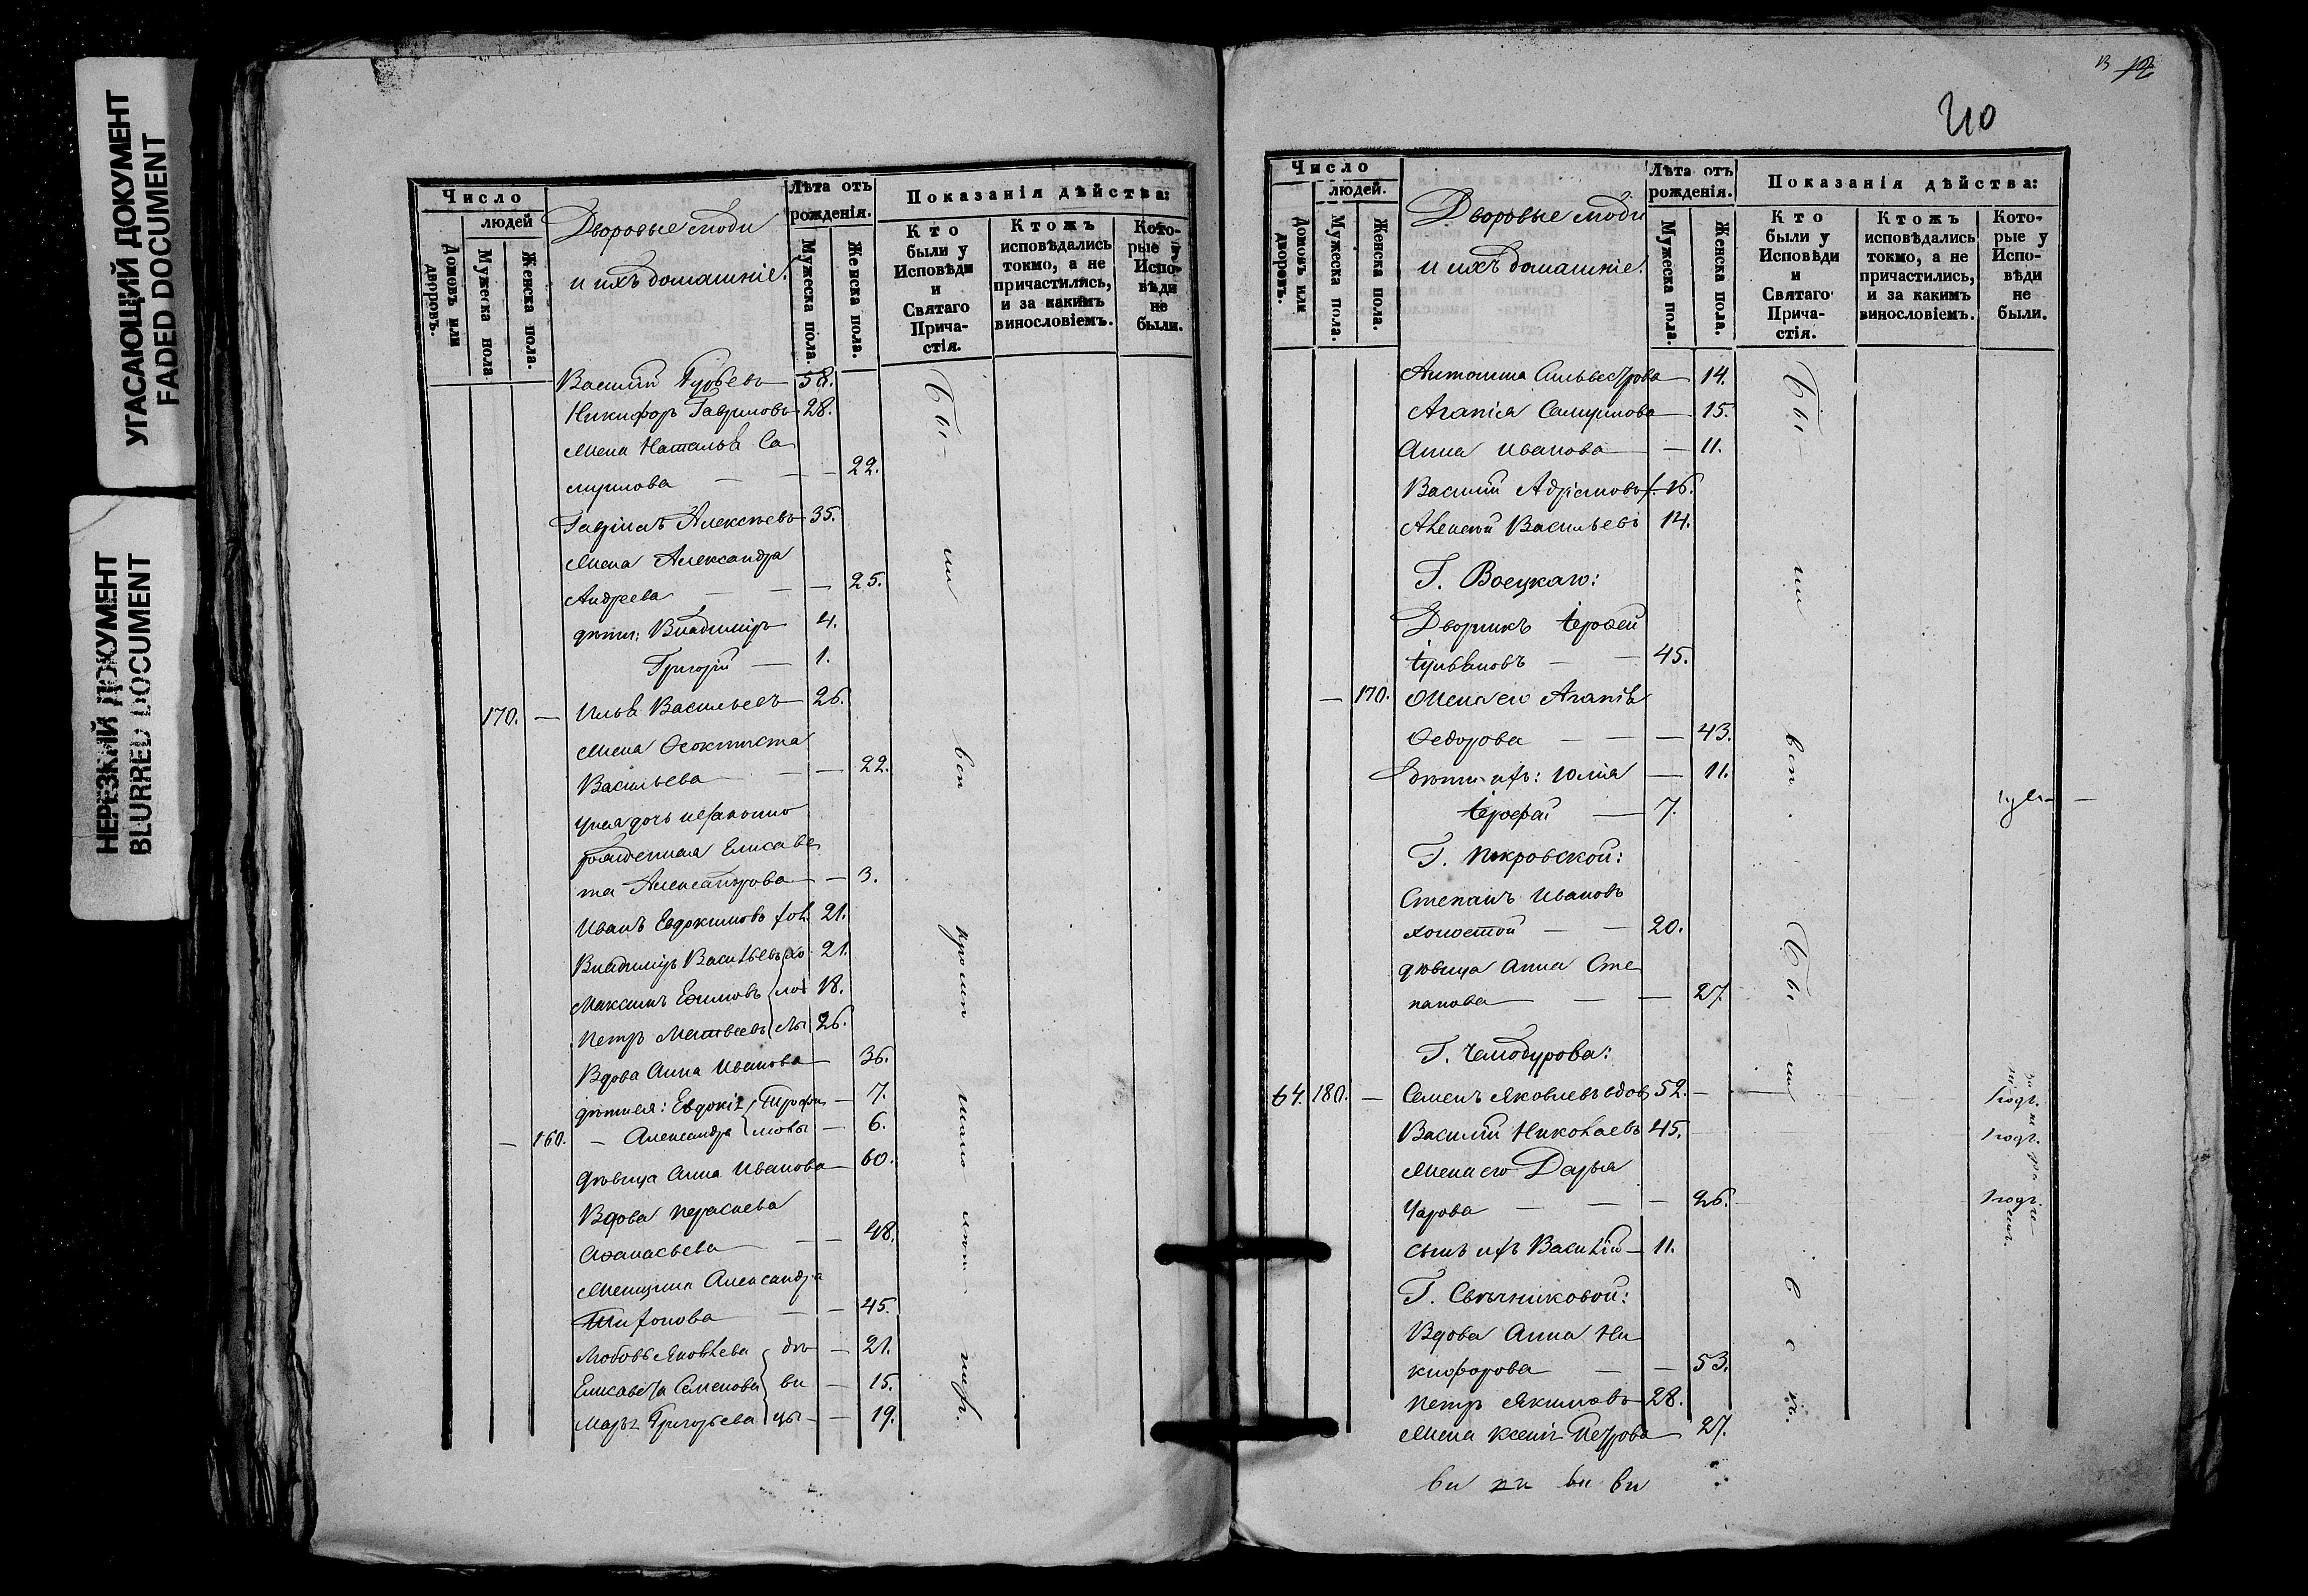 УГАСАЮЩИЙ ДОКУМЕНТ
FADED DOCUMENT
НЕРЕЗКИЙ ДОКУМЕНТ
BLURRED DOCUMENT
Число
людей
Домовъ или дворовъ.
Мужеска пола
Женска пола.
Дворовые люди
и ихъ домашніе.
Лѣта отъ рожденія.
Мужеска пола.
Женска пола.
Показанія дѣйства:
Кто были у Исповѣди и Святаго Прича-стія.
Ктожъ исповѣдались токмо, а не причастились, и за какимъ винословіемъ.
Кото-рые у Испо-вѣди не были.
Василій 58.
Никифоръ Гавриловъ 28.
Жена Наталья Са
муилова — — 22.
Гавріилъ Алексѣевъ 35.
Жена Александра
Андреева — — 25.
дѣти: Владиміръ 4.
Григорій — 1.
170. — Илья Васильевъ 26.
Жена Ѳеоктиста
Васильева — — 22.
у нея дочь незаконно
рожденная Елисаве
та Александрова — 3.
Иванъ Евдокимовъ хол. 21.
Владиміръ Васильевъ хо 21.
Максимъ Ефимовъ лос 18.
Петръ Матвеевъ ты 26.
Вдова Анна Иванова 36.
дѣти ея: Евдокія Трофи — 7.
— 160. — Александра мовы — 6.
дѣвица Анна Иванова 60.
Вдова
Аѳанасьева — — 48.
Женщина Александра
Тихонова — — 45.
Любовь Яковлева дѣ — 21.
Елисавета Семенова ви — 15.
Марья Григорьева цы — 19.
Бы
ли
всѣ
210
Число
людей.
Домовъ или дворовъ.
Мужеска пола.
Женска пола.
Дворовые люди
и ихъ домашніе.
Лѣта отъ рожденія.
Мужеска пола.
Женска пола.
Показанія дѣйства:
Кто были у Исповѣди и Святаго Прича-стія.
Ктожъ исповѣдались токмо, а не причастились, и за какимъ винословіемъ.
Кото-рые у Испо-вѣди не были.
Антонина Сильвестрова 14.
Агапія Самуилова 15.
Анна Иванова — 11.
Василій Адріановъ х. 16.
Алексѣй Васильевъ 14.
Г. Воецкаго:
Дворникъ Іероѳей
45.
— 170. Жена его Агапія
Ѳедорова — — 43.
дѣти ихъ: Юлія — 11.
Іероѳей — 7.
Г. Покровской:
Степанъ Ивановъ
холостой — — 20.
дѣвица Анна Сте
панова — — 27.
Г. Чемодурова:
64. 180. — Семенъ Яковлевъ вдов. 52.
Василій Николаевъ 45.
Жена его Дарья
— — 26.
сынъ ихъ Василій — 11.
Г. Свѣчниковой:
Вдова Анна Ни
кифорова — — 53.
Петръ Якимовъ 28.
Жена Ксенія Петрова 27.
Бы
ли
всѣ
Бы
ли